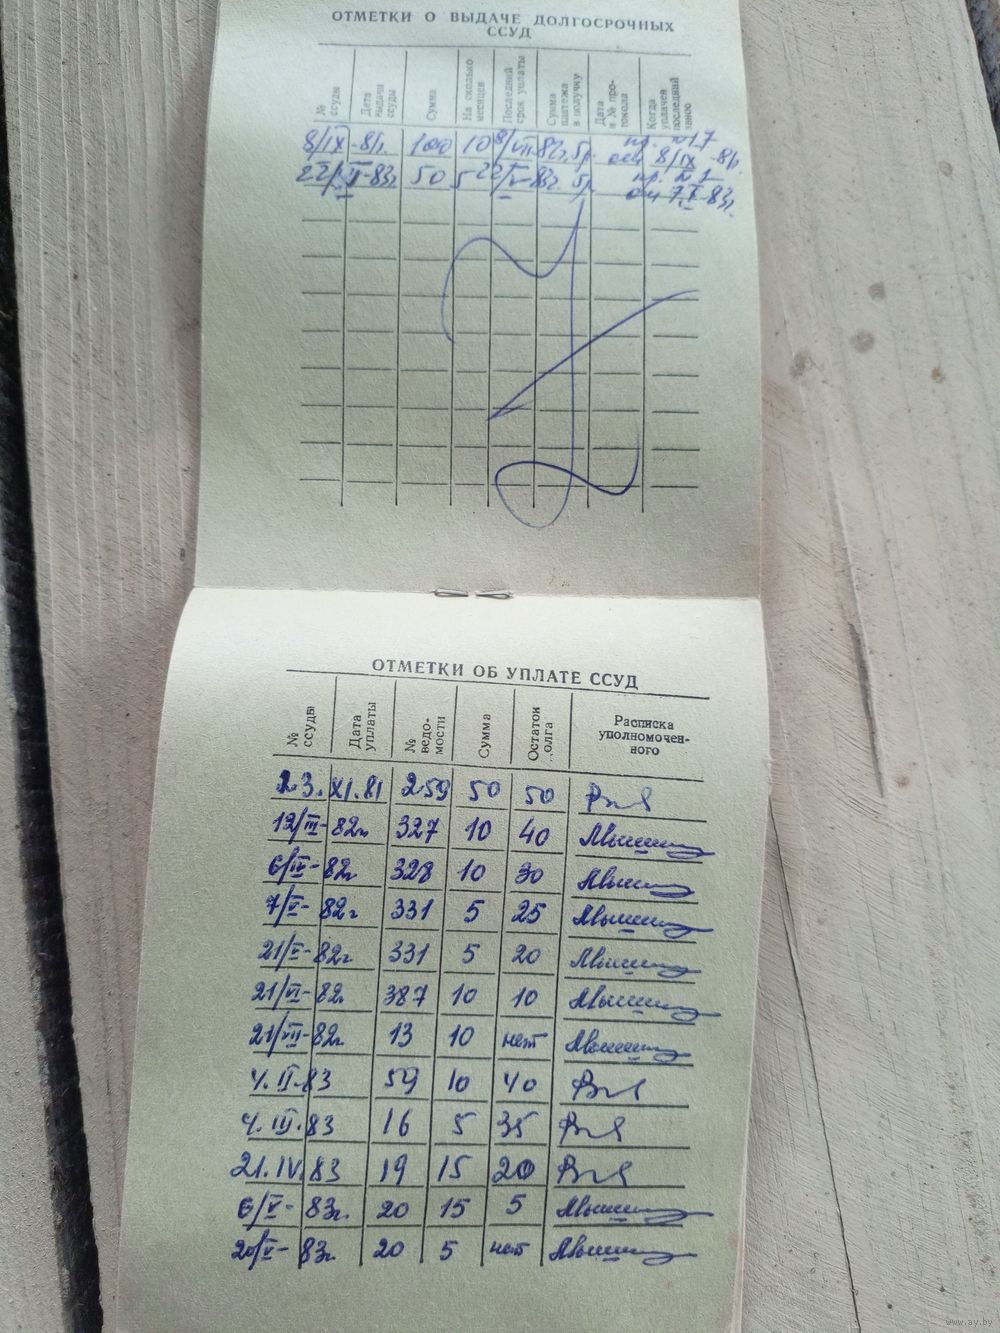 ОТМЕТКИ О ВЫДАЧЕ ДОЛГОСРОЧНЫХ
ССУД
№ ссуды
Дата выдачи ссуды
Сумма
На сколько месяцев
Последний срок уплаты
Сумма платежа в получку
Дата и № протокола
Когда уплачен последний взнос
8/IX-81г. 100 10 8/VII-82г. 5р. пр. №17
от 8/IX-81.
22/II-83г. 50 5 22/V-83г. 5р. пр. №1
ОТМЕТКИ ОБ УПЛАТЕ ССУД
№ ссуды
Дата уплаты
№ ведо-
мости
Сумма
Остаток
олга
Расписка
уполномочен-
ного
23.XI.81 259 50 50
12/III-82г. 327 10 40
6/IV-82г. 328 10 30
7/V-82г 331 5 25
21/V-82г 331 5 20
21/VI-82. 387 10 10
21/VII-82г. 13 10 нет
4.II.83 59 10 40
4.III.83 16 5 35
21.IV.83 19 15 20
6/V-83г. 20 15 5
20/V-83г. 20 5 нет
www.ay.by